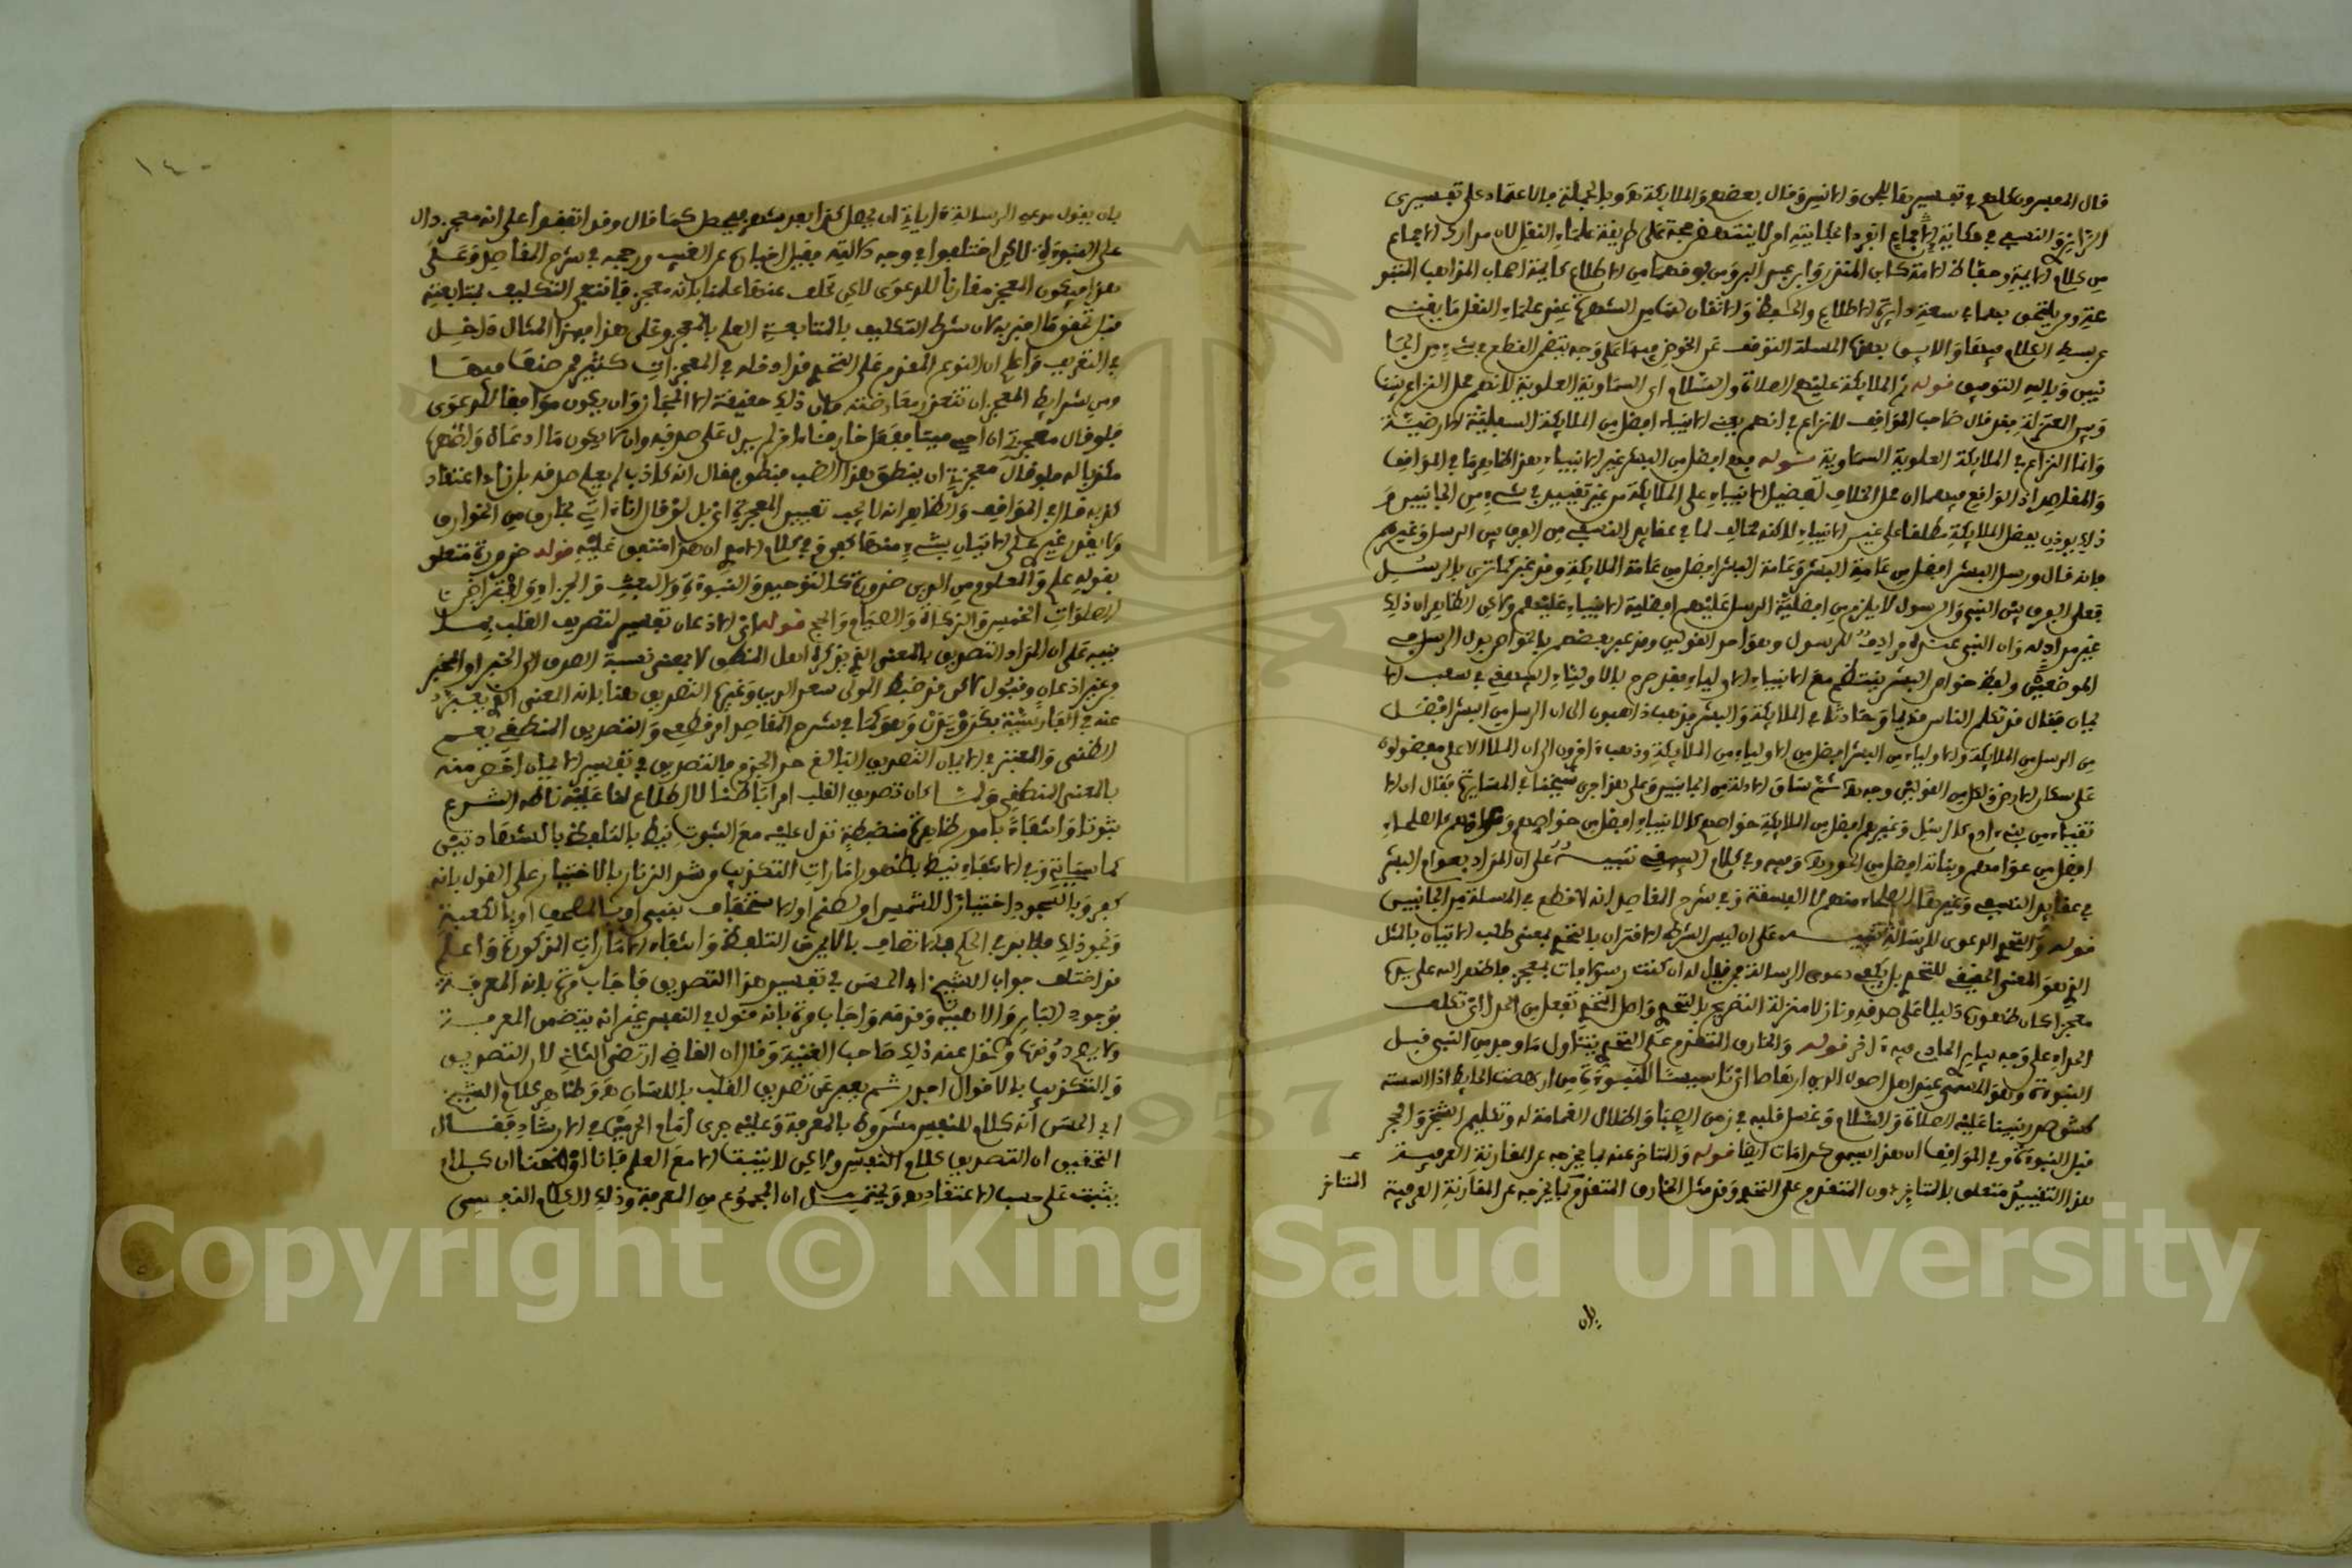 قال المفسرون كلهم في تفسير بقا للجن والانس وقال بعضهم والملايكة وبالجملة فالاعتماد على تفسيري
الرازي والنسفي في حكاية الاجماع انفردا بحكايته امر لا ينتهض حجة على طريقة علماء النقل لان مدارك الاجماع
من كلام الايمة وحفاظ الامة كابن المنذر وابن عبد البر ومن فوقهما من الاطلاع كايمة اصحاب المذاهب المتبو
عة ومن يلتحق بهما في سعة دايرة الاطلاع والحفظ والاتقان لها من الشهرة عند علماء النقل ما يغني
عن بسط الكلام فيها واللايق بهذه المسلة التوقف عن الخوض فيها على وجه يتضمن القطع في شيء من الجا
نبين وبالله التوفيق قوله ثم الملايكة عليهم الصلاة والسلام اى السماوية العلوية لانهم محل النزاع بيننا
وبين المعتزلة فقد قال صاحب المواقف لا نزاع في انهم يعني الانبياء افضل من الملايكة السفلية الارضية
وانما النزاع في الملايكة العلوية السماوية قوله فهم افضل من البشر غير الانبياء هذا مخالف لما في المواقف
والمقاصد اذ الواقع فيهما ان محل الخلاف تفضيل الانبياء على الملايكة من غير تقييد في شيء من الجانبين و
ذلك يوذن بفضل الملايكة مطلقا على غير الانبياء لاكنه مخالف لما في عقايد النسفي من الفرق بين الرسل وغيرهم
فانه قال ورسل البشر افضل من عامة البشر وعامة البشر افضل من عامة الملايكة وقد عبر كما ترى بالرسل
فعلى الفرق بين النبي والرسول لا يلزم من افضلية الرسل عليهم افضلية الانبياء عليهم ولاكن الظاهر ان ذلك
غير مراد له وان النبي عنده مرادف للرسول وهو احد القولين وقد عبر بعضهم بالخواص بدل الرسل في
الموضعين ولفظ خواص البشر ينتظم مع الانبياء الاولياء فقد صرح بالاولياء البيهقي في شعب الا
يمان فقال قد تكلم الناس قديما وحديثا في الملايكة والبشر فذهب ذاهبون الى ان الرسل من البشر افضل
من الرسل من الملايكة والاولياء من البشر افضل من الاولياء من الملايكة وذهب اخرون الى ان الملا الاعلى مفضلون
على سكان الارض ولكل من القولين وجه ثم ساق الادلة من الجانبين وعلى هذا جرى شيخنا في المسايرة فقال ان الا
تقياء من بني ادم كالرسل وغيرهم افضل من الملايكة خواصهم كالانبياء افضل من خواصهم وعوامهم كالصلحاء
افضل من عوامهم وبناتة افضل من الحور وفيه وفي كلام البيهقي تنبيه على ان المراد بعوام البشر
في عقايد النسفي وغيرها الصلحاء منهم لا الفسقة وفي شرح المقاصد انه لا قطع في المسلة من الجانبين
قوله والتحدي الدعوى للرسالة تنبيه على ان ليس الشرط الاقتران بالتحدي بمعنى طلب الاتيان بالمثل
الذي هو المعنى الحقيقي للتحدي بل يكفي دعوى الرسالة فلو قيل له ان كنت رسولا فات بمعجز فاظهر الله على يده
معجزا كان ظهوره دليلا على صدقه ونازلا منزلة التصريح بالتحدي واصل التحدي تفعل من الحداي تكلف
الحداء على وجه يباري الحادي فيه اخر قوله والخارق المتقدم على التحدي يتناول ما وجد من النبي قبل
النبوة وهو المسمى عند اهل اصول الدين ارهاصا اي تاسيسا للنبوة من ارهصت الحايط اذا اسسته
كشق صدر نبينا عليه الصلاة والسلام وغسل قلبه في زمن الصبا واظلال الغمامة له وتكليم الشجر والحجر
قبل النبوة وفي المواقف ان هذا يسمى كرامات ايضا قوله والمتاخر عنه بما يخرجه عن المقارنة العرفية
هذا التقييد متعلق بالمتاخر دون المتقدم على التحدي وقد مثل الخارق المتقدم بما يخرجه عن المقارنة العرفية
المتاخر
بان
١٤٠
بان يقول مدعي الرسالة اية ان يحصل كذا بعد شهر فيحصل كما قال وقد اتفقوا على انه معجز دال
على النبوة لاكن اختلفوا في وجه دلالته فقيل اخباره عن الغيب ورجحه في شرح المقاصد وعلى
هذا فيكون المعجز مقارنا للدعوى لاكن تخلف عندنا علمنا بانه معجز فانتفى التكليف بمتابعته
قبل تحقق ما اخبر به لان شرط التكليف بالمتابعة العلم بالمعجز وعلى هذا فهذا المثال داخل
في التعريف واعلم ان النوع المقدم على التحدي قد ادخله في المعجزات كثير ممن صنف فيها
ومن شرايط المعجز ان تتعذر معارضته فان ذلك حقيقة الاعجاز وان يكون موافقا للدعوى
فلو قال معجزتي ان احيي ميتا ففعل خارقا اخر لم يدل على صدقه وان لا يكون ما ادعاه واظهره
مكذبا له فلو قال معجزتي ان ينطق هذا الضب فنطق فقال انه كاذب لم يعلم صدقه بل زاد اعتقاد
كذبه قال في المواقف والظاهر انه لا يجب تعيين المعجزة اي بل لو قال انا اتي بخارق من الخوارق
ولا يقدر غيري على الاتيان بشيء منها كفى وفي كلام الامدي ان هذا متفق عليه قوله ضرورة متعلق
بقوله علم والمعلوم من الدين ضرورة كالتوحيد والنبوة والبعث والجزاء وافتراض
الصلوات الخمس والزكاة والصيام والحج قوله اي الاذعان تفسير لتصديق القلب بما
ينبه على ان المراد التصديق بالمعنى الذي يذكره اهل المنطق لا بمعنى نسبة الصدق الى الخبر او المخبر
من غير اذعان وقبول لاكن قد ضبط المولى سعد الدين وغيره التصديق هنا بانه المعنى الذي يعبر
عنه في الفارسية بكرويدن وهو كما في شرح المقاصد امر قطعي والتصديق المنطقي يعم
الظني والمعتبر في الايمان التصديق البالغ حد الجزم فالتصديق في تفسير الايمان اخص منه
بالمعنى المنطقي ولما كان تصديق القلب امرا باطنا لا اطلاع لنا عليه ناطه الشرع
ثبوتا وانتفاء بامور ظاهرة منضبطة تدل عليه مع الثبوت نيط بالتلفظ بالشهادتين
كما سياتي وفي الانتفاء نيط بظهور امارات التكذيب من شد الزنار بالاختيار على القول بانه
كفر وبالسجود اختيارا للشمس او لصنم او الاستخفاف بنبي او بالمصحف او بالكعبة
ونحو ذلك فلا بد في الحكم بالاتصاف بالايمان التلفظ وانتفاء الامارات المذكورة واعلم
قد اختلف جواب الشيخ ابي الحسن في تفسير هذا التصديق فاجاب مرة بانه المعرفة
بوجود الباري والاهيته وقدمه واجاب مرة بانه قول في النفس غير انه يتضمن المعرفة
ولا يصح دونها ونقل عنه ذلك صاحب الغنية وقال ان القاضي ارتضى الثاني لان التصديق
والتكذيب بالاقوال اجدر ثم يعبر عن تصديق القلب باللسان وظاهر كلام الشيخ
ابي الحسن انه كلام للنفس مشروط بالمعرفة وعليه جرى امام الحرمين في الارشاد فقال
التحقيق ان التصديق كلام النفس ولاكن لا يثبت الا مع العلم فانا اوضحنا ان كلام
يثبت على حسب الاعتقاد ويحتمل ان المجموع من المعرفة وذلك الكلام النفسي